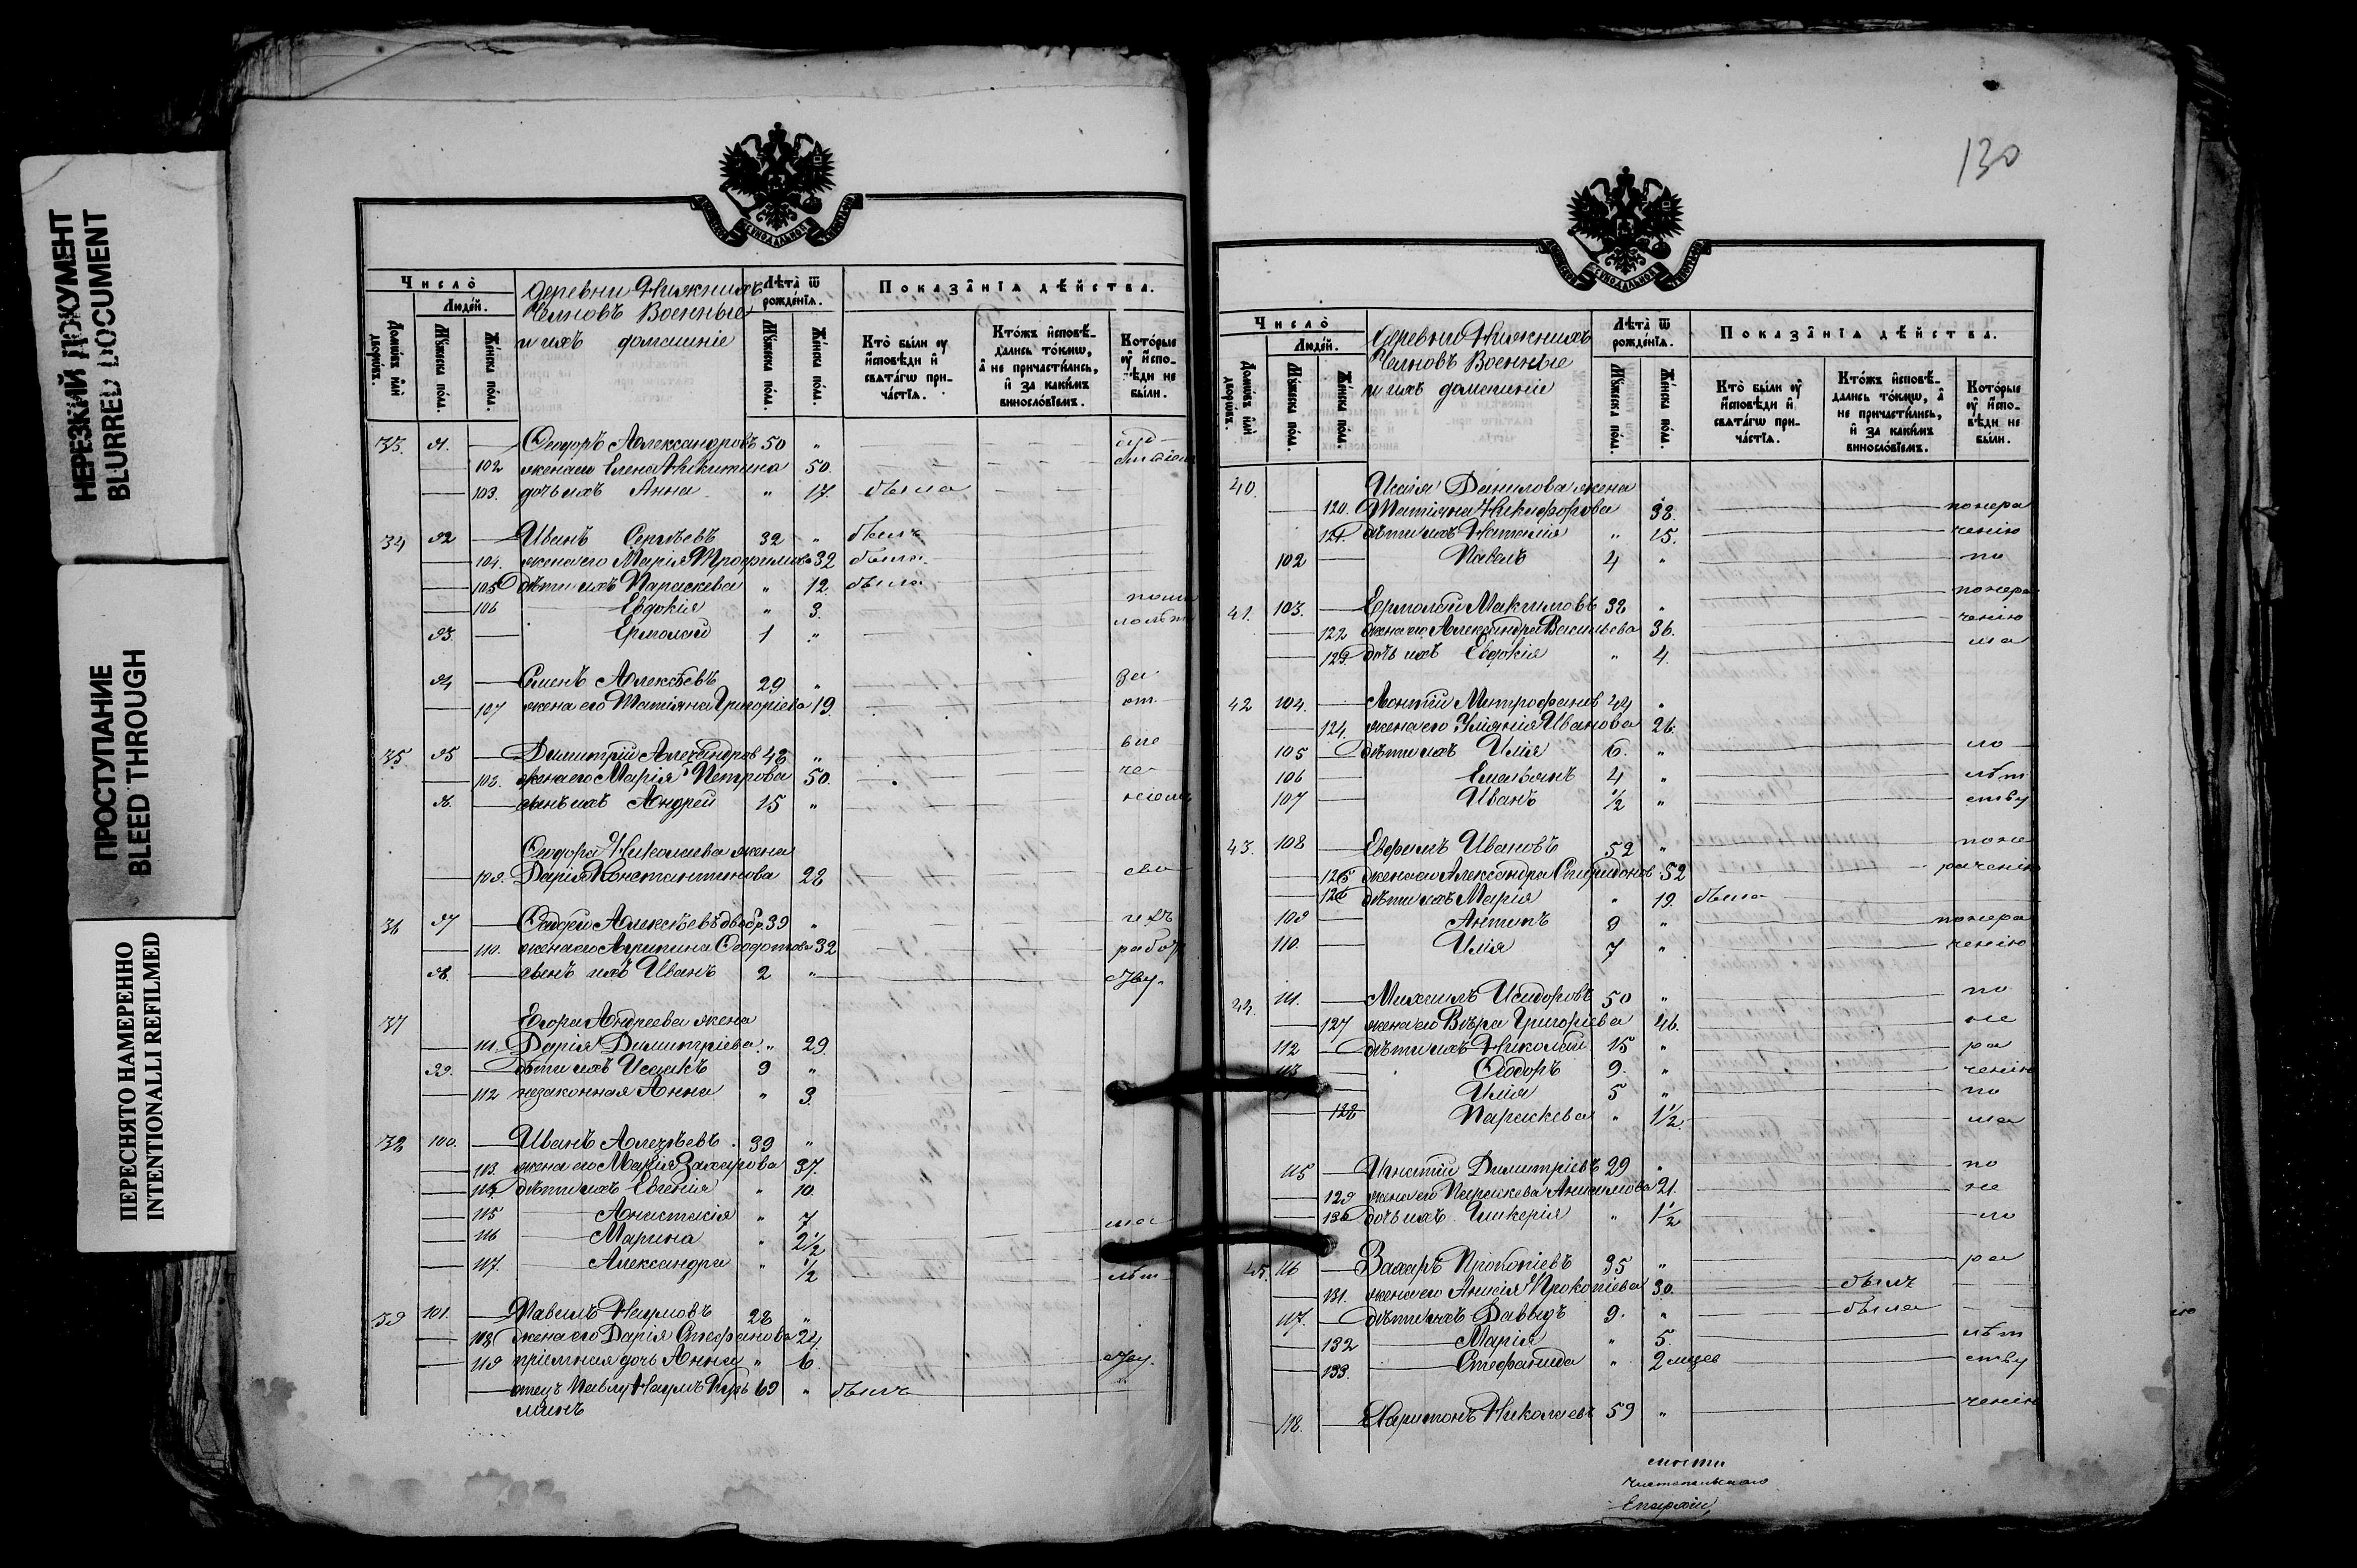 НЕРЕЗКИЙ ДОКУМЕНТ
BLURRED DOCUMENT
ПРОСТУПАНИЕ
BLEED THROUGH
ПЕРЕСНЯТО НАМЕРЕННО
INTENTIONALLI REFILMED
Число̀
Людéй.
Домѡвъ илѝ дворѡвъ.
Мꙋжеска пола.
Женска пола.
деревни Нижнихъ
Челновъ Военные
и ихъ домашніе
Лѣта̀ ѿ рождéнїѧ.
Мꙋжеска пола.
Женска пола.
Показа̂нїѧ дѣйства.
Кто̀ бы́ли ᲂу҆ и҆сповѣди и҆ свѧта́гѡ причастїѧ.
Кто́жъ и҆сповѣдались то́кмѡ, а҆ не причасти́лись, и҆ за каки́мъ винослóвїемъ.
Кото́рые ᲂу҆ и҆сповѣди не бы́ли.
33. 91. Ѳеодоръ Александровъ 50 "
102 жена его Елена Никитина 50.
103. дочь ихъ Анна " 17. была
34 92 Иванъ Сергѣевъ 32 " былъ
104. жена его Марія Трофимова 32 была
105 дѣти ихъ Параскева " 12. была
106 Евдокія " 3.
93. Ермолай 1 "
94 Семенъ Алексѣевъ 29 "
107 жена его Татіяна Григоріева 19.
35 95 Димитрій Александров 48 "
108. жена его Марія Петрова 50.
96. сынъ ихъ Андрей 15 "
Ѳеодора Николаева жена
109. Дарія Константинова 28
36 97 Алексѣевъ 39 "
110. жена его Агрипина Ѳеодотова 32
98. сынъ ихъ Иванъ 2 "
37 Егора Андреева жена
111. Дарія Димитріева " 29.
99. дѣти ихъ Исаакъ 9 "
112 незаконная Анна " 3.
38 100. Иванъ Алексѣевъ 39 "
113. жена его Марія Захарова 37.
114 дѣти ихъ Евгенія " 10.
115 Анастасія " 7
116 Марина " 2½
117. Александра " ½
39 101. Павелъ Наумовъ 28 "
118 жена его Дарія Стефанова 24.
119 пріемная дочь Анна " 6.
отецъ Павлу Наумъ 69 " былъ
130
Число̀
Людéй.
Домѡвъ илѝ дворѡвъ.
Мꙋжеска пола.
Женска пола.
деревни Нижнихъ
Челновъ Военные
и ихъ домашніе
Лѣта̀ ѿ рождéнїѧ.
Мꙋжеска пола.
Женска пола.
Показа̂нїѧ дѣйства.
Кто̀ бы́ли ᲂу҆ и҆сповѣди и҆ свѧта́гѡ причастїѧ.
Кто́жъ и҆сповѣдались то́кмѡ, а҆ не причасти́лись, и҆ за каки́мъ винослóвїемъ.
Кото́рые ᲂу҆ и҆сповѣди не бы́ли.
40. Данилова жена
120. Татіяна Никифорова 38. понера
121. дѣти ихъ Наталія " 15. ченію
102 Павелъ 4 " по
41. 103. Ермолай Максимовъ 38 " понера
122 жена его Александра Васильева 36. ченію
123. дочь ихъ Евдокія " 4. ма
42 104. Леонтій Митрофанов 44 "
124. жена его Уліянія Иванова 26.
105 дѣти ихъ Илія 6. " ло
106 Емельянъ 4 " лѣт
107 Иванъ ½ " ству
43. 108 Евфимъ Ивановъ 52 " поне
125 жена его Александра Спиридонов 52 раченію
126 дѣти ихъ Марія " 19 была
109 Антипъ 9 " понера
110. Илія 7 " ченію
44. 111. Михаилъ Исидоровъ 50 " по
127 жена его Вѣра Григоріева 46. не
112 дѣти ихъ Николай 15 " ра
113 Ѳеодоръ 9. " ченію
Илія 5 " по
128 Параскева " 1½. ма
115 Игнатій Димитріевъ 29 " по
129 жена его Параскева Анисимова 21. не
130 дочь ихъ Гликерія " 1½ ло
45. 116 Захаръ Прокопіевъ 35 " ра
131. жена его Анисія Прокопіева 30. былъ
117. дѣти ихъ Давыдъ 9. " была
132 Марія " 5. лѣт
133. Стефанида " 2 мцев ству
118. Харитонъ Николаевъ 59 " ченію
Чистопольскаго
Епархіи,